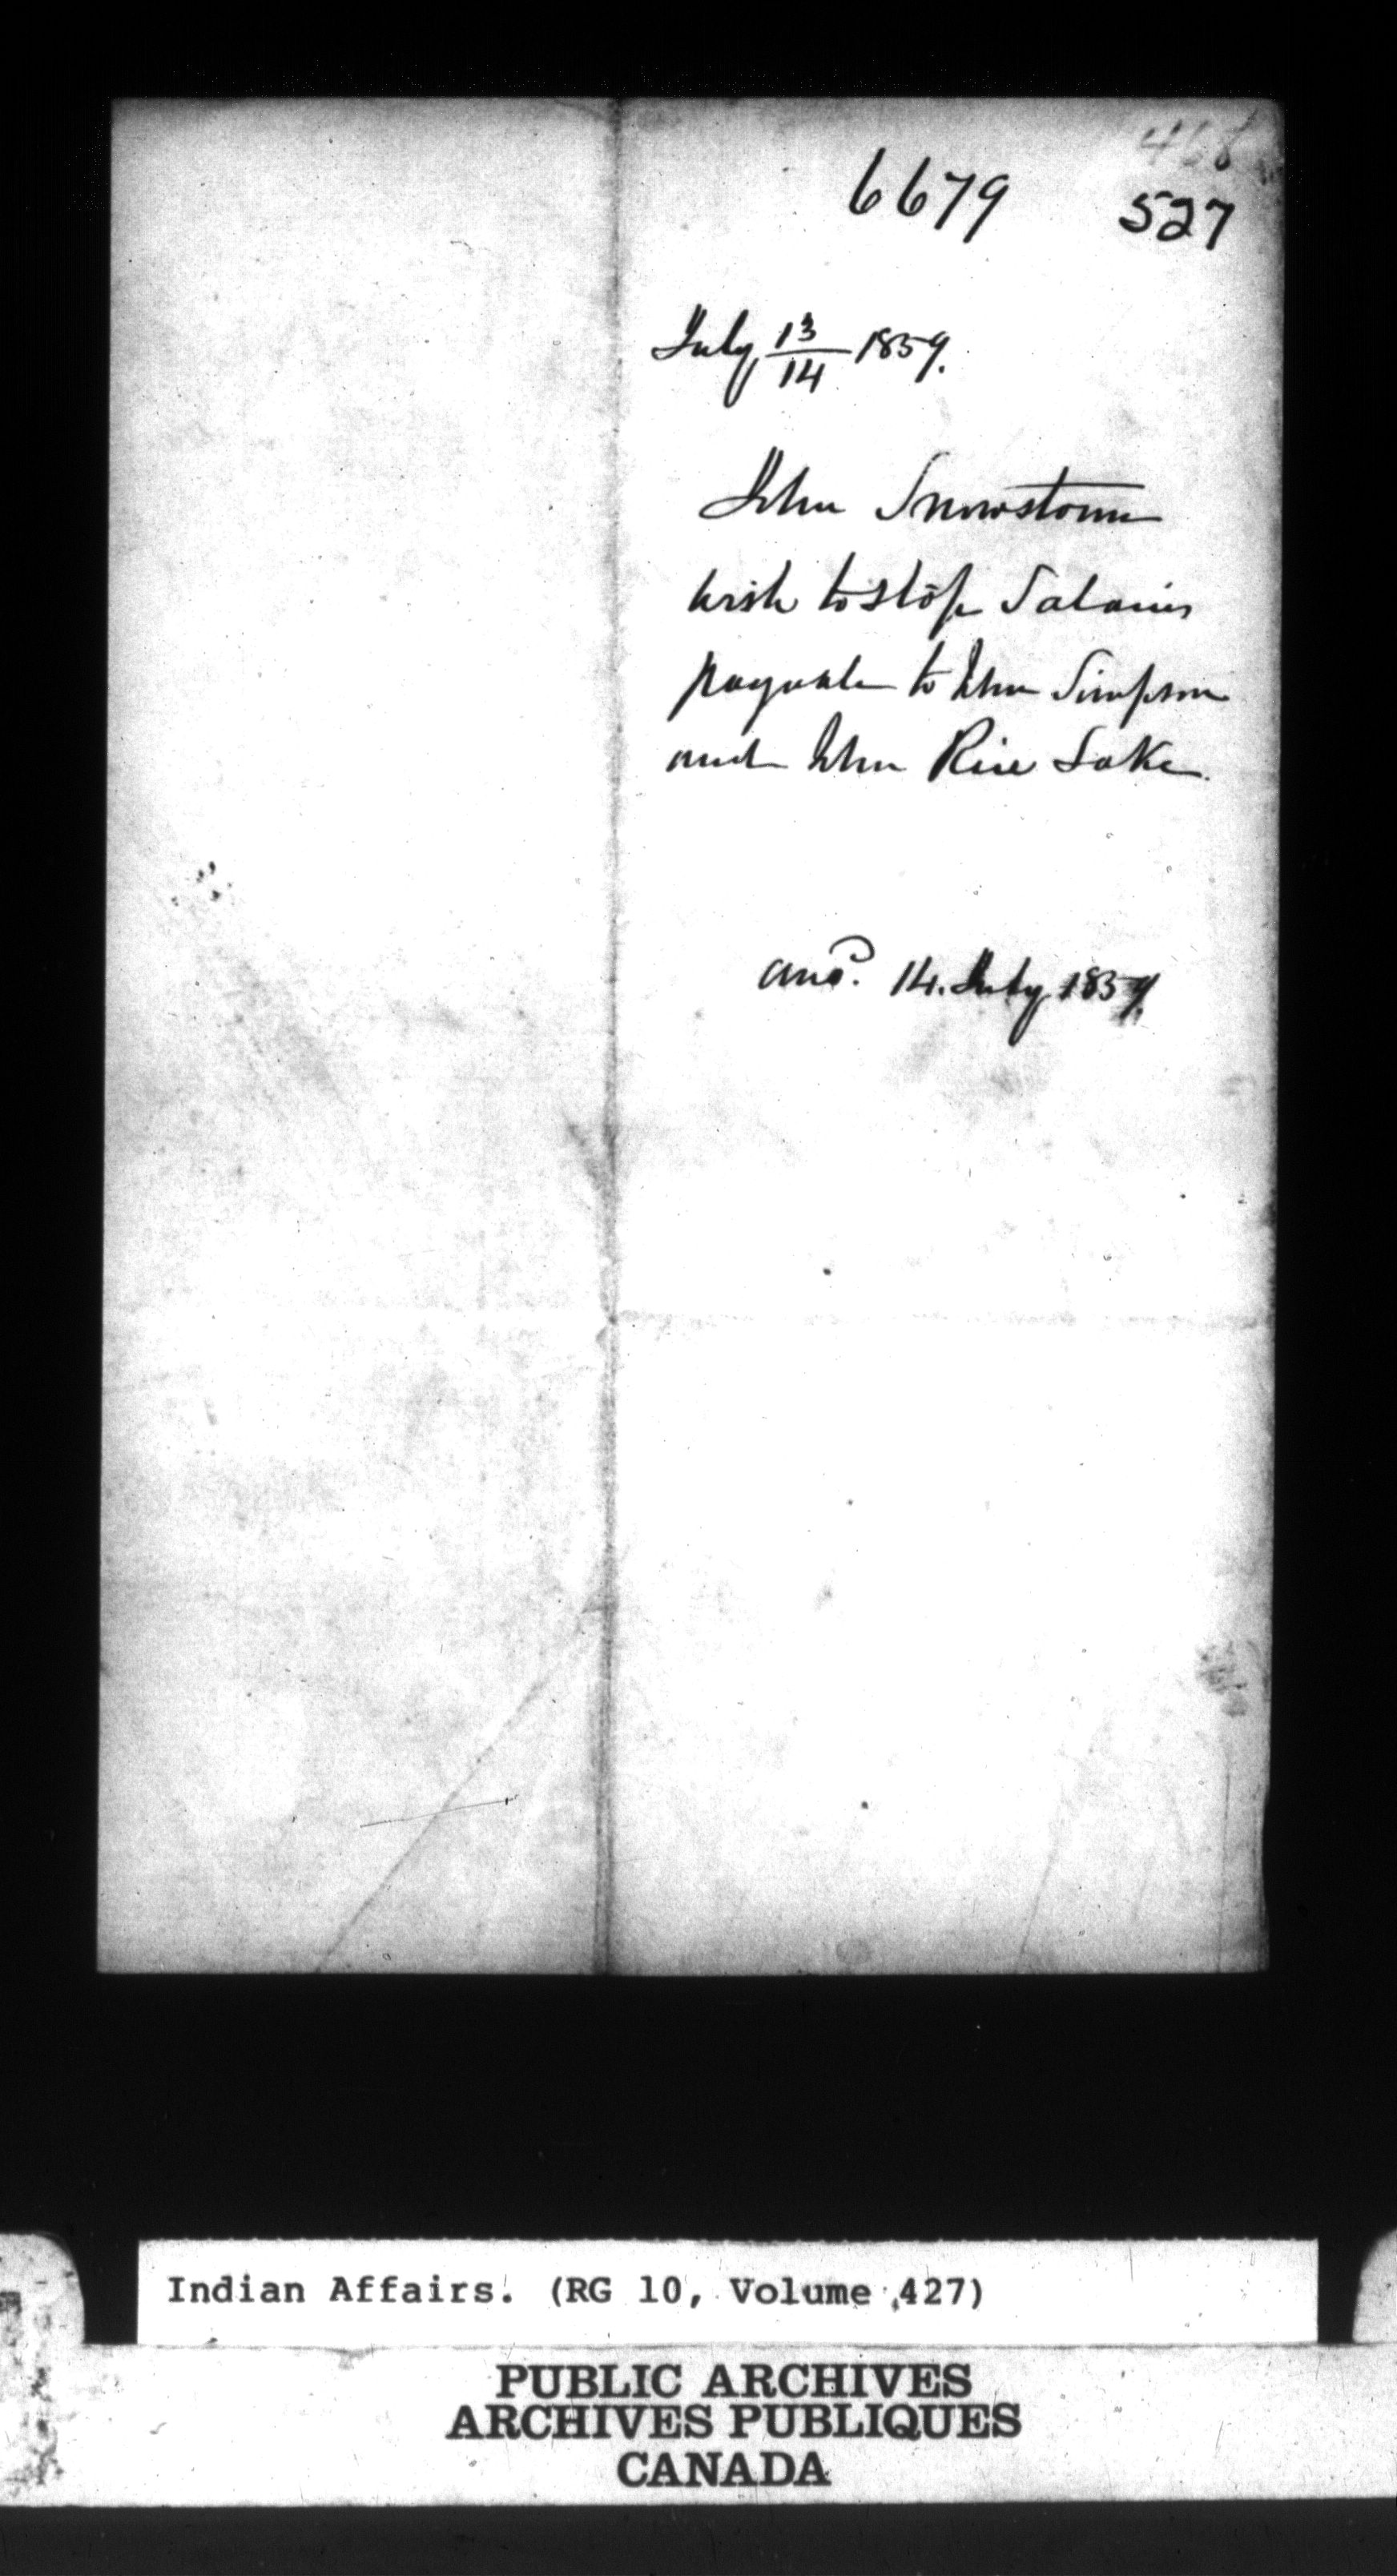 468
6679 527
July 13/14 1859.
John Snowstorm
wish to stop Salaries
payable to John Simpson
and John Rice Lake
ansd. 14. July 1859
Indian Affairs. (RG 10, Volume 427)
PUBLIC ARCHIVES
ARCHIVES PUBLIQUES
CANADA